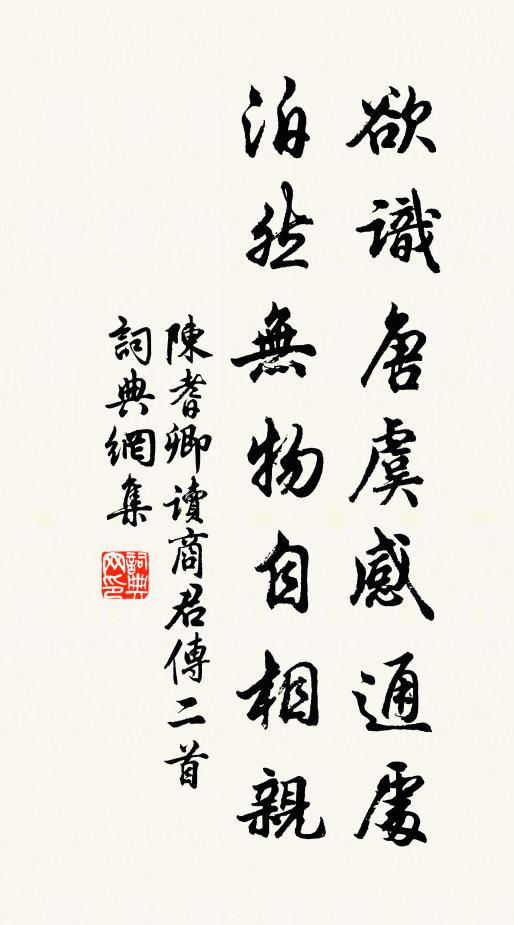 欲識唐虞感通處
泊然無物自相親
陳耆卿讀商君傳二首
詞典網集
詞典網印